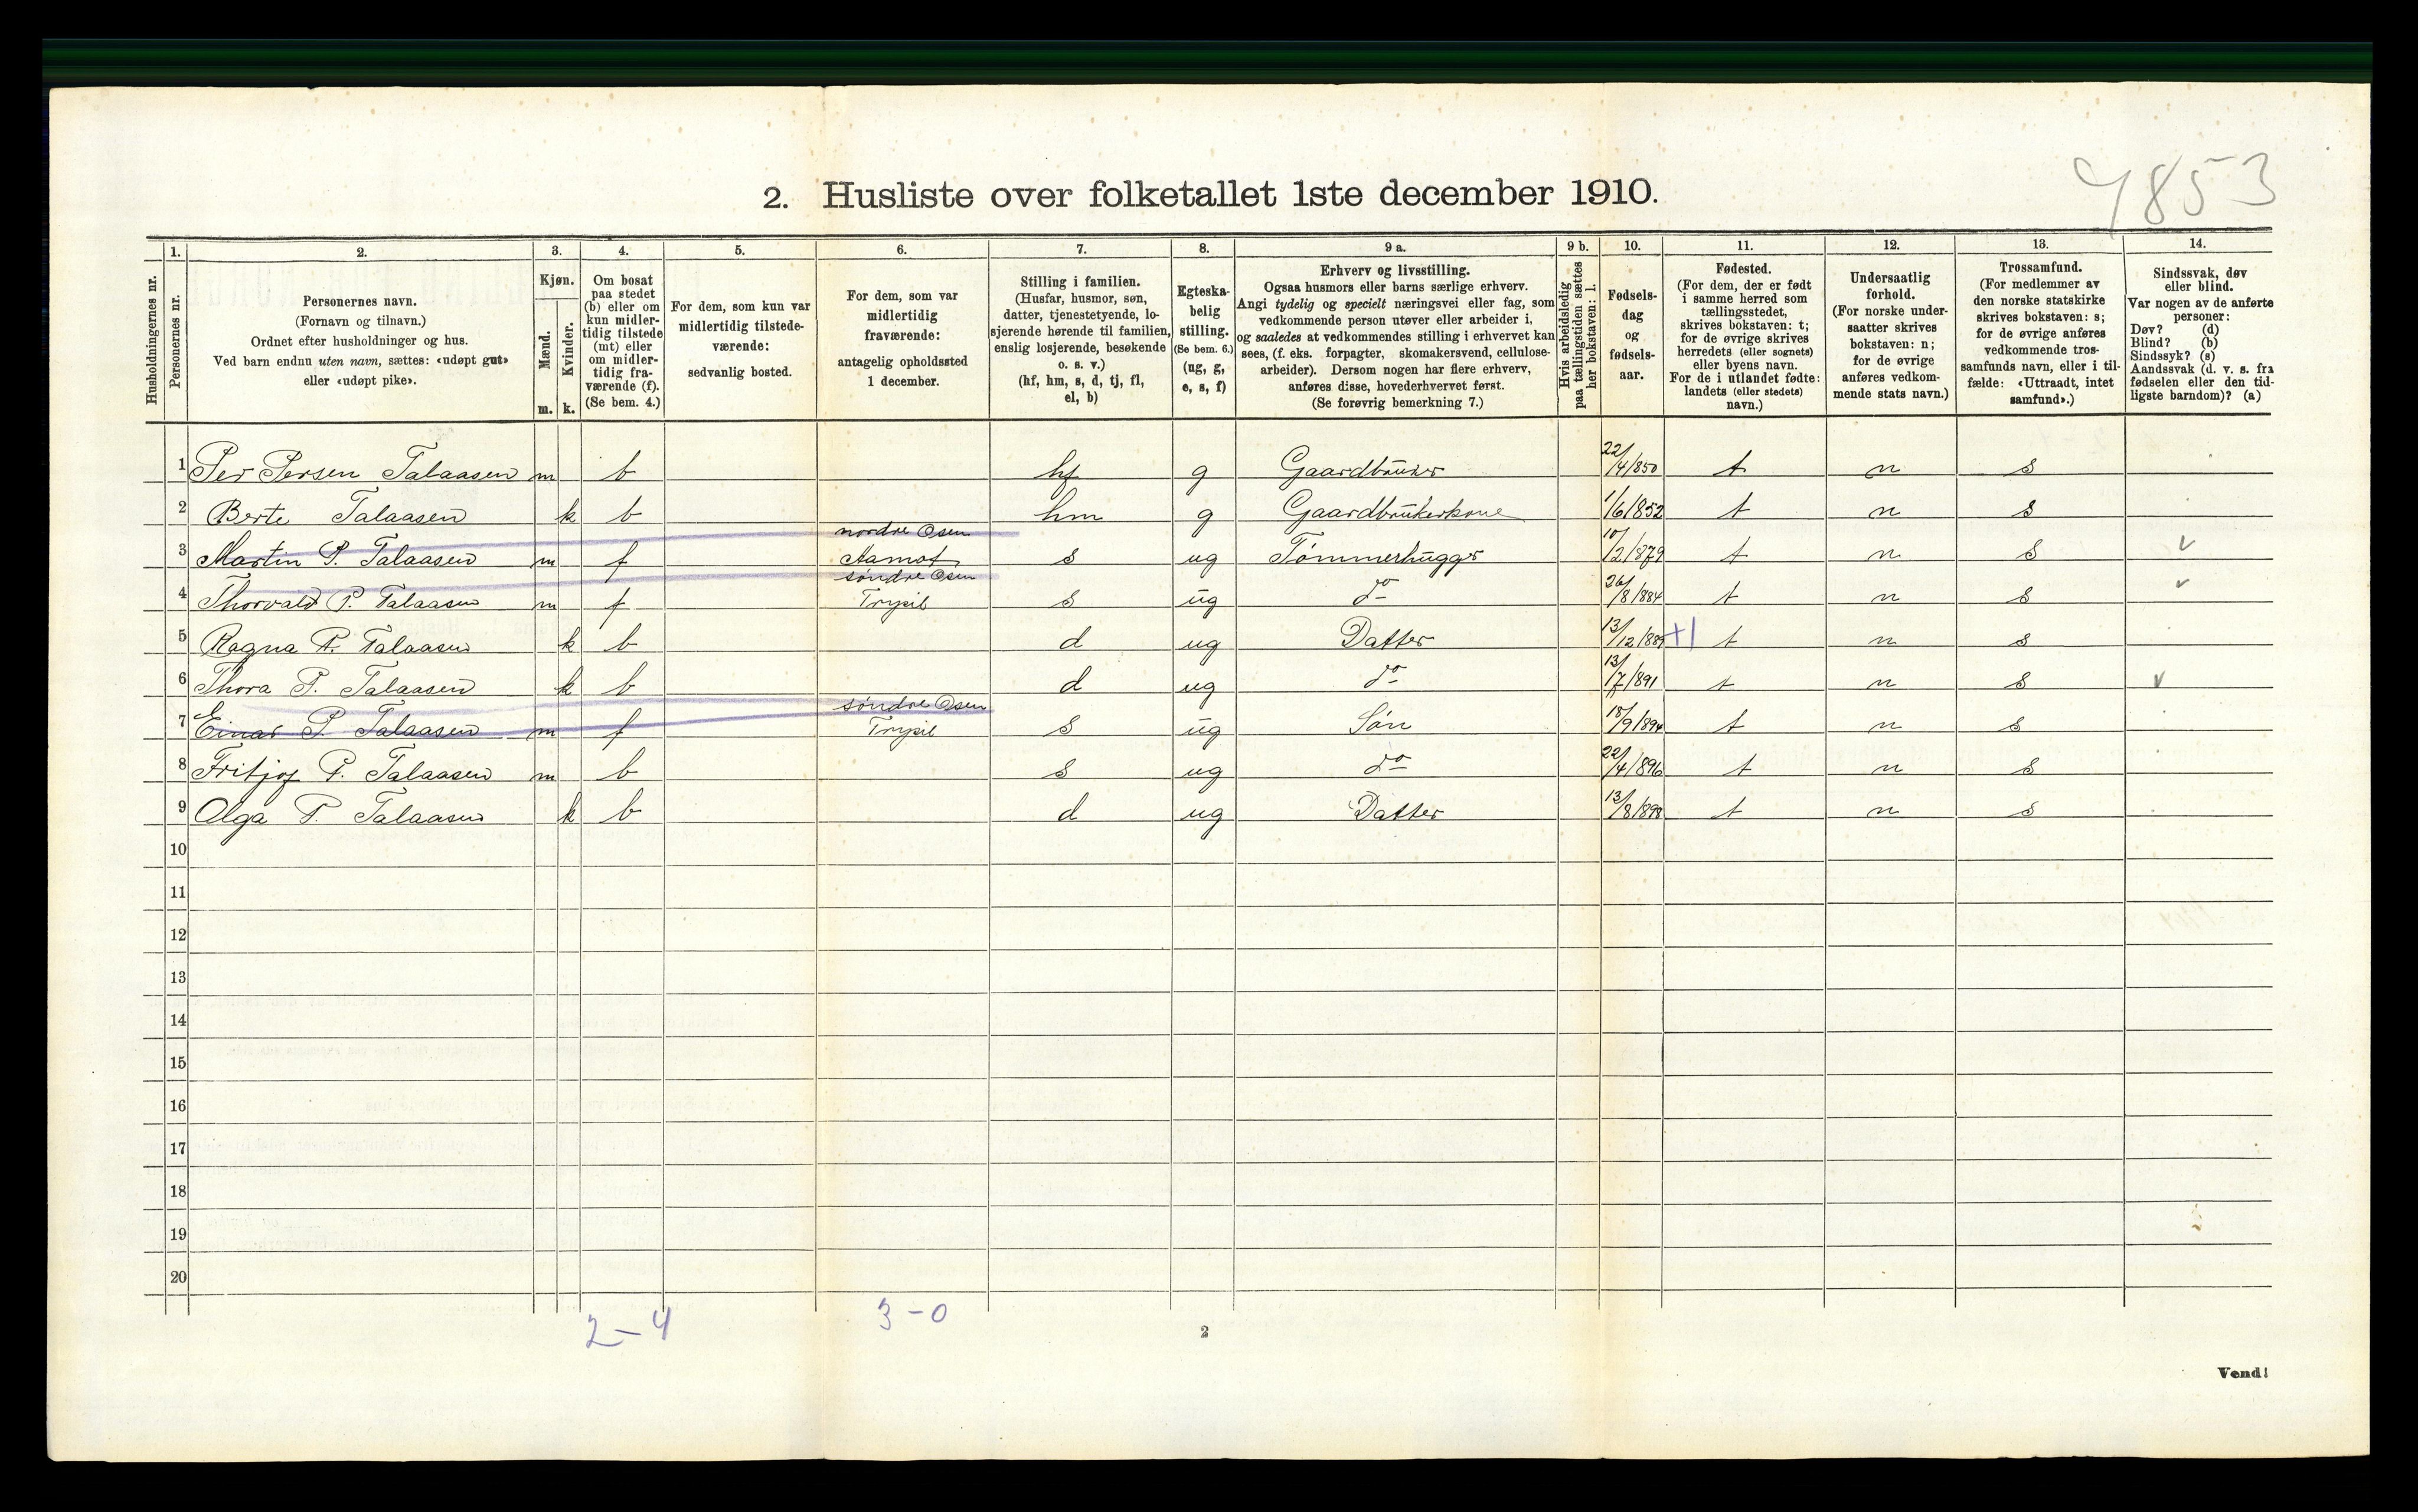 7853
2. Husliste over folketallet 1ste december 1910.
Husholdningernes nr.
1.
Personernes nr.
2.
Personernes navn.
(Fornavn og tilnavn.)
Ordnet efter husholdninger og hus.
Ved barn endnu uten navn, sættes: «udøpt gut»
eller «udøpt pike».
3.
Kjøn.
Mænd.
Kvinder.
m. k.
4.
Om bosat
paa stedet
(b) eller om
kun midler-
tidig tilstede
(mt) eller
om midler-
tidig fra-
værende (f).
(Se bem. 4.)
5.
For dem, som kun var
midlertidig tilstede-
værende:
sedvanlig bosted.
6.
For dem, som var
midlertidig
fraværende:
antagelig opholdssted
1 december.
7.
Stilling i familien.
(Husfar, husmor, søn,
datter, tjenestetyende, lo-
sjerende hørende til familien,
enslig losjerende, besøkende
o. s. v.)
(hf, hm, s, d, tj, fl,
el, b)
8.
Egteska-
belig
stilling.
(Se bem. 6.)
(ug, g,
e, s, f)
9 a.
Erhverv og livsstilling.
Ogsaa husmors eller barns særlige erhverv.
Angi tydelig og specielt næringsvei eller fag, som
vedkommende person utøver eller arbeider i,
og saaledes at vedkommendes stilling i erhvervet kan
sees, (f. eks. forpagter, skomakersvend, cellulose-
arbeider). Dersom nogen har flere erhverv,
anføres disse, hovederhvervet først.
(Se forøvrig bemerkning 7.)
9 b.
Hvis arbeidsledig
paa tællingstiden sættes
her bokstaven: l.
10.
Fødsels-
dag
og
fødsels-
aar.
11.
Fødested.
(For dem, der er født
i samme herred som
tællingsstedet,
skrives bokstaven: t;
for de øvrige skrives
herredets (eller sognets)
eller byens navn.
For de i utlandet fødte:
landets (eller stedets)
navn.)
12.
Undersaatlig
forhold.
(For norske under-
saatter skrives
bokstaven: n;
for de øvrige
anføres vedkom-
mende stats navn.)
13.
Trossamfund.
(For medlemmer av
den norske statskirke
skrives bokstaven: s;
for de øvrige anføres
vedkommende tros-
samfunds navn, eller i til-
fælde: «Uttraadt, intet
samfund».)
14.
Sindssvak, døv
eller blind.
Var nogen av de anførte
personer:
Døv? (d)
Blind? (b)
Sindssyk? (s)
Aandssvak (d. v. s. fra
fødselen eller den tid-
ligste barndom)? (a)
1 Per Persen Talaasen m b hf g Gaardbruker 22/4/850 t n s
2 Berte Talaasen k b hm g Gaardbrukerkone 1/6/852 t n s
3 Martin P. Talaasen m f nordre Osen Aamot s ug Tømmerhugger 10/2/879 t n s v
4 Thorvald P. Talaasen m f søndre Osen Trysil s ug do 26/8/884 t n s v
5 Ragna P. Talaasen k b d ug Datter 13/12/889 +1 t n s
6 Thora P. Talaasen k b d ug do 13/7/891 t n s v
7 Einar P. Talaasen m f søndre Osen Trysil s ug Søn 18/9/894 t n s
8 Fritjof P. Talaasen m b s ug do 22/4/896 t n s
9 Olga P. Talaasen k b d ug Datter 13/8/898 t n s
10
11
12
13
14
15
16
17
18
19
20
2-4 3-0
2
Vend!